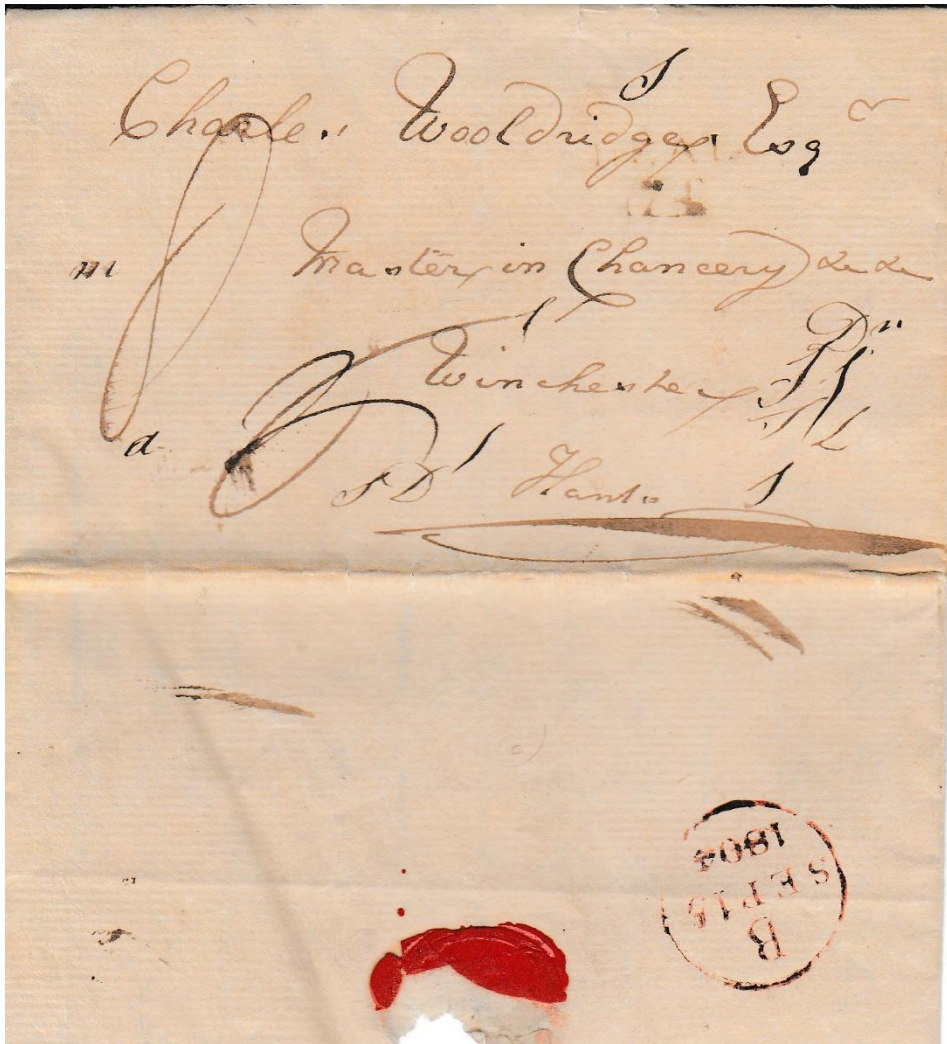 Charles Wooldridge Esqr
Master in Chancery &c &c
Winchester
Hants
B
SEP 15
1804